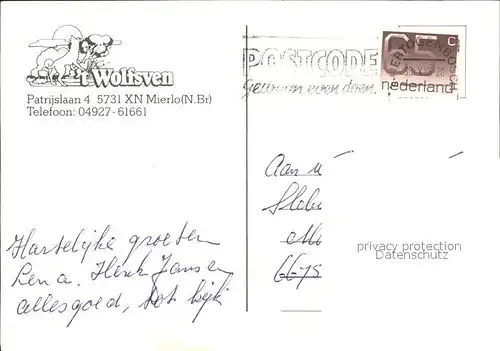 't Wolfsven
Patrijslaan 4 5731 XN Mierlo(N.Br)
Telefoon: 04927-61661
POSTCODE
gewoon even doen.
65 c
nederland
Aan
privacy protection
Datenschutz
Hartelijke groeten
Lena. Henk Jansen
allesgoed, tot kijk